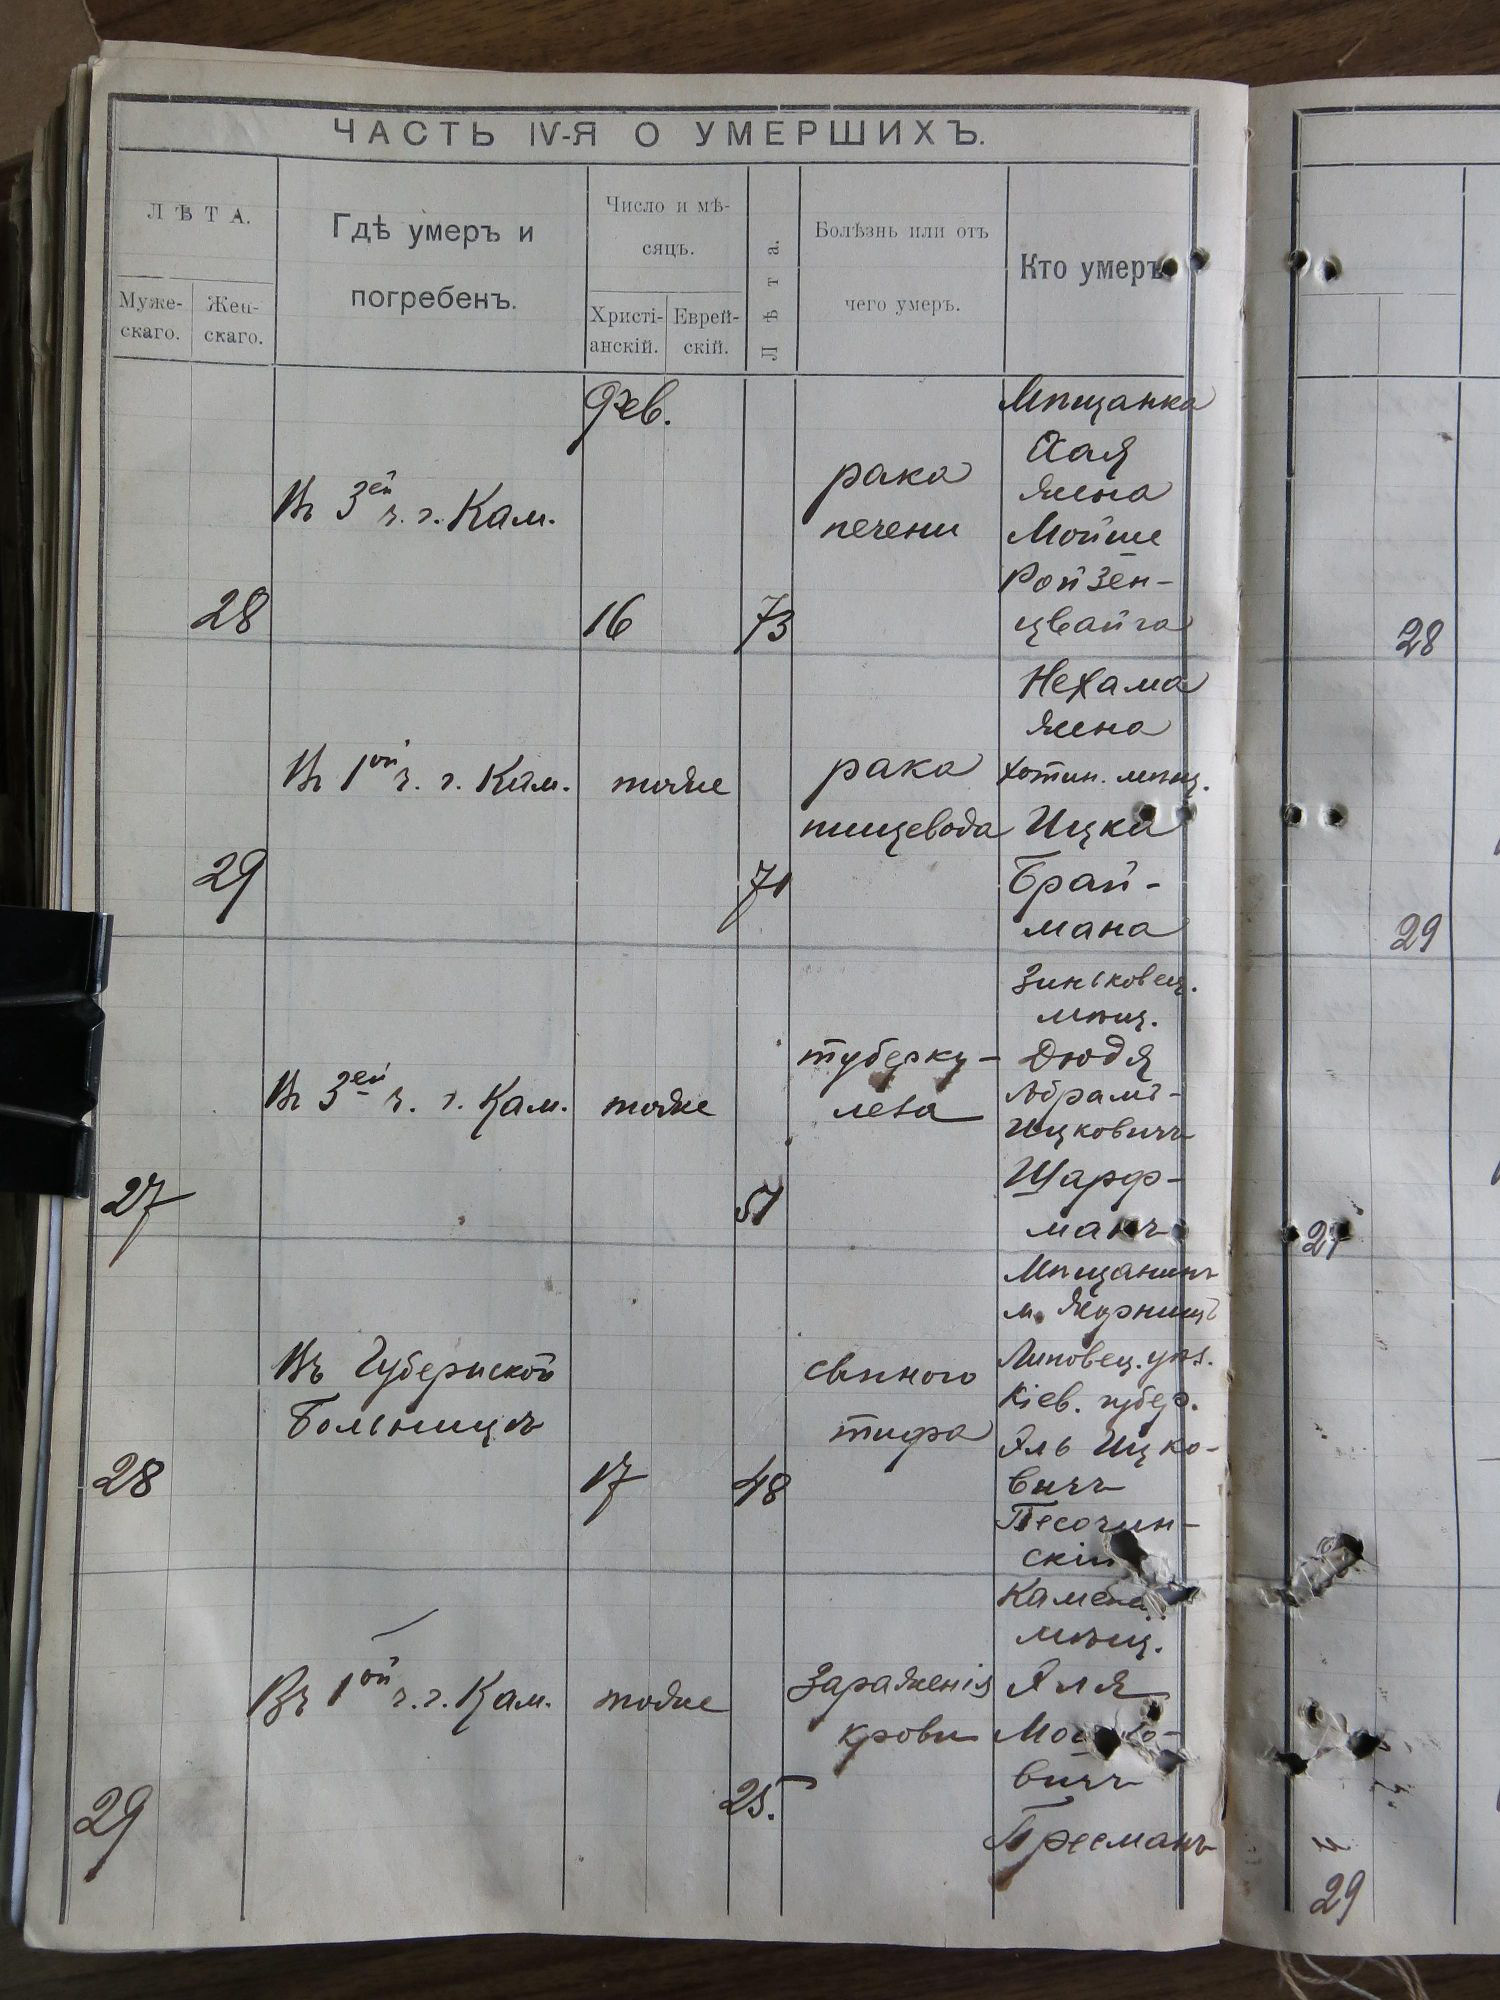 ЧАСТЬ IV-Я О УМЕРШИХЪ.
ЛѢТА.
Муже-
скаго.
Жен-
скаго.
Гдѣ умеръ и
погребенъ.
Число и мѣ-
сяцъ.
Христі-
анскій.
Еврей-
скій.
Лѣта.
Болѣзнь или отъ
чего умеръ.
Кто умеръ
28
Въ 3ей ч. г. Кам.
Фев.
16
73
рака
печени
Мѣщанка
Хая
жена
Мойше
Ройзен-
цвайга
29
Въ 1ой ч. г. Кам.
тоже
71
рака
пищевода
Нехама
жена
Хотин. мѣщ.
Ицка
Брай-
мана
27
Въ 3ей ч. г. Кам.
тоже
51
туберку-
леза
Зиньковец.
мѣщ.
Дюдя
Абрамъ-
Ицковичъ
Шарф-
манъ
28
Въ Губернской
Больницѣ
17
48
сыпного
тифа
Мѣщанинъ
м.
Липовец. уѣз.
Кіев. губер.
Яль Ицко-
вичъ
Песочин-
скій
29
Въ 1ой ч. г. Кам.
тоже
25.
Зараженія
крови
Камен.
мѣщ.
Яля
вичъ
Пресманъ
28
29
27
29